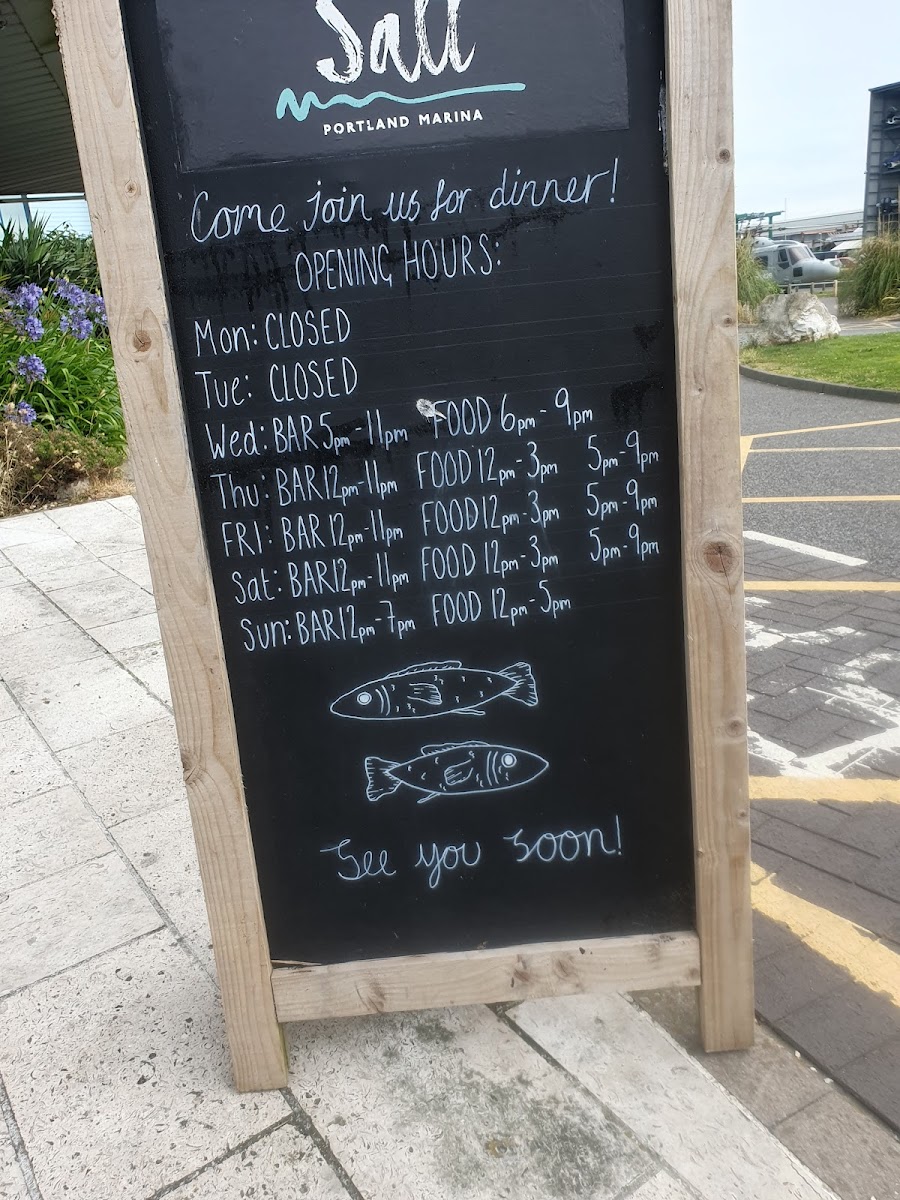 Salt
PORTLAND MARINA
Come join us for dinner!
OPENING HOURS:
Mon: CLOSED
Tue: CLOSED
Wed: BAR 5pm-11pm FOOD 6pm-9pm
Thu: BAR 12pm-11pm FOOD 12pm-3pm 5pm-9pm
FRI: BAR 12pm-11pm FOOD 12pm-3pm 5pm-9pm
Sat: BAR 12pm-11pm FOOD 12pm-3pm 5pm-9pm
Sun: BAR 12pm-7pm FOOD 12pm-5pm
See you soon!